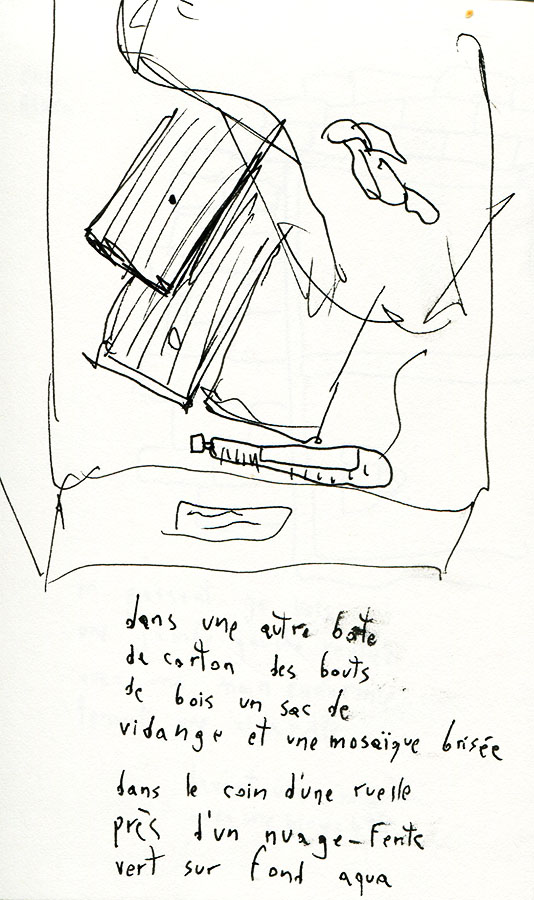 dans une autre boîte
de carton des bouts
de bois un sac de
vidange et une mosaïque brisée
dans le coin d'une ruelle
près d'un nuage-fente
vert sur fond aqua